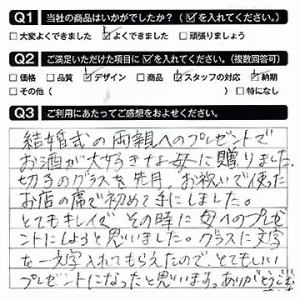 Q1 当社の商品はいかがでしたか?(☑を入れてください。)
□大変よくできました ☑よくできました □頑張りましょう
Q2 ご満足いただけた項目に☑を入れてください。(複数回答可)
□価格 □品質 ☑デザイン □商品 ☑スタッフの対応 ☑納期
□その他( )□特になし
Q3 ご利用にあたってご感想をおよせください。
結婚式の両親へのプレゼントで
お酒が大好きな母に贈りました。
切子のグラスを先月、お祝いで使った
お店の席で初めて手にしました。
とてもキレイで その時に 母へのプレゼ
ントにしようと思いました。グラスに文字
を一文字入れてもらえたので、とてもいい
プレゼントになったと思います。ありがとうござ